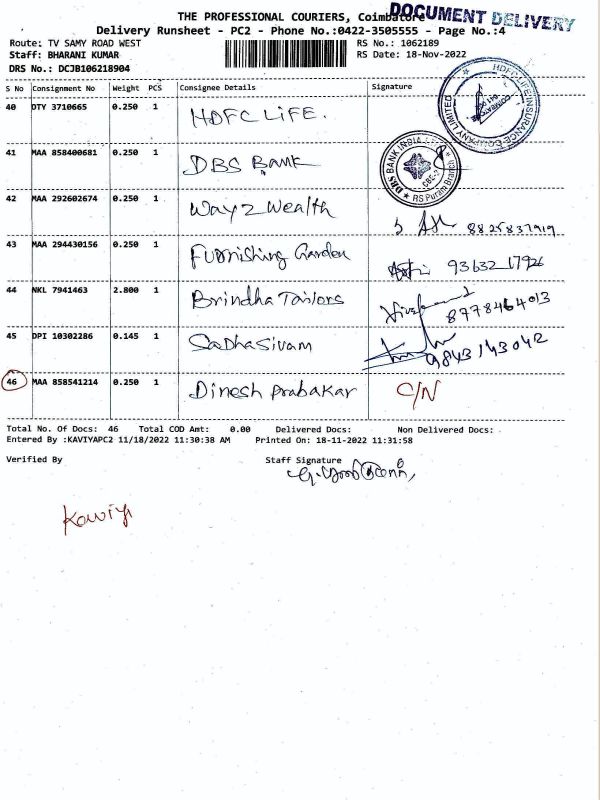 THE PROFESSIONAL COURIERS, Coimbatore
DOCUMENT DELIVERY
Delivery Runsheet - PC2 - Phone No.:0422-3505555 - Page No.:4
Route: TV SAMY ROAD WEST
RS No.: 1062189
Staff: BHARANI KUMAR
RS Date: 18-Nov-2022
DRS No.: DCJB106218904
S No Consignment No Weight PCS Consignee Details Signature
40 DTY 3710665 0.250 1 HDFC LIFE.
HDFC LIFE INSURANCE COMPANY LIMITED
41 MAA 858400681 0.250 1 DBS Bank
DBS BANK INDIA
CBE-2
RS Puram Branch
42 MAA 292602674 0.250 1 Way2Wealth 8825837919
43 MAA 294430156 0.250 1 Furnishing Garden 93632 17926
44 NKL 7941463 2.800 1 Brindha Tailors 8778464013
45 DPI 10302286 0.145 1 Sadhasivam 9843143042
46 MAA 858541214 0.250 1 Dinesh Prabakar C/N
Total No. Of Docs: 46 Total COD Amt: 0.00 Delivered Docs: Non Delivered Docs:
Entered By :KAVIYAPC2 11/18/2022 11:30:38 AM Printed On: 18-11-2022 11:31:58
Verified By Staff Signature
Kaviya